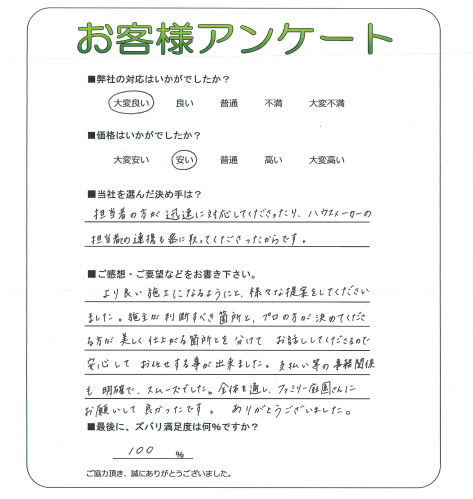 お客様アンケート
■弊社の対応はいかがでしたか？
大変良い 良い 普通 不満 大変不満
■価格はいかがでしたか？
大変安い 安い 普通 高い 大変高い
■当社を選んだ決め手は？
担当者の方が迅速に対応してくださったり、ハウスメーカーの
担当者との連携も密に取ってくださったからです。
■ご感想・ご要望などをお書き下さい。
より良い施工になるようにと、様々な提案をしてください
ました。施主が判断すべき箇所と、プロの方が決めてくださ
る方が美しく仕上がる箇所とを分けてお話ししてくださるので
安心してお任せする事が出来ました。支払い等の事務関係
も明確で、スムーズでした。全体を通し、ファミリー庭園さんに
お願いして良かったです。ありがとうございました。
■最後に、ズバリ満足度は何%ですか？
100 %
ご協力頂き、誠にありがとうございました。